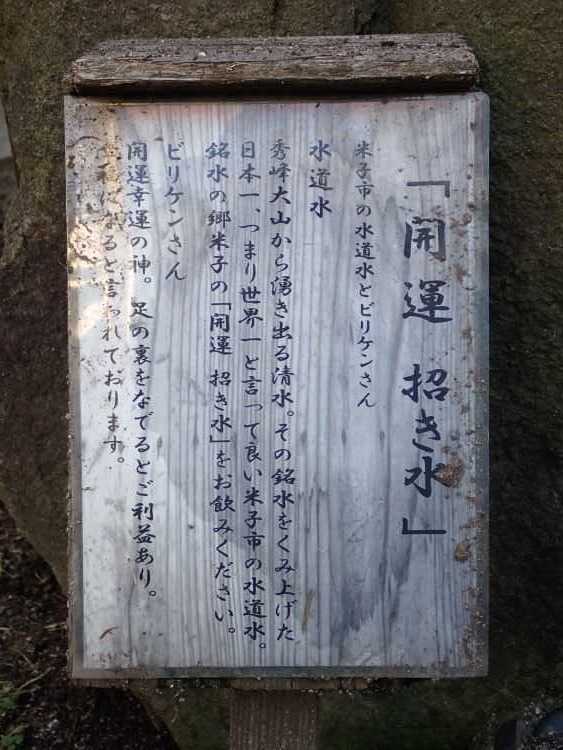 「開運 招き水」
米子市の水道水とビリケンさん
水道水
秀峰大山から湧き出る清水。その銘水をくみ上げた
日本一、つまり世界一と言って良い米子市の水道水。
銘水の郷米子の「開運 招き水」をお飲みください。
ビリケンさん
開運幸運の神。足の裏をなでるとご利益あり。
になると言われております。